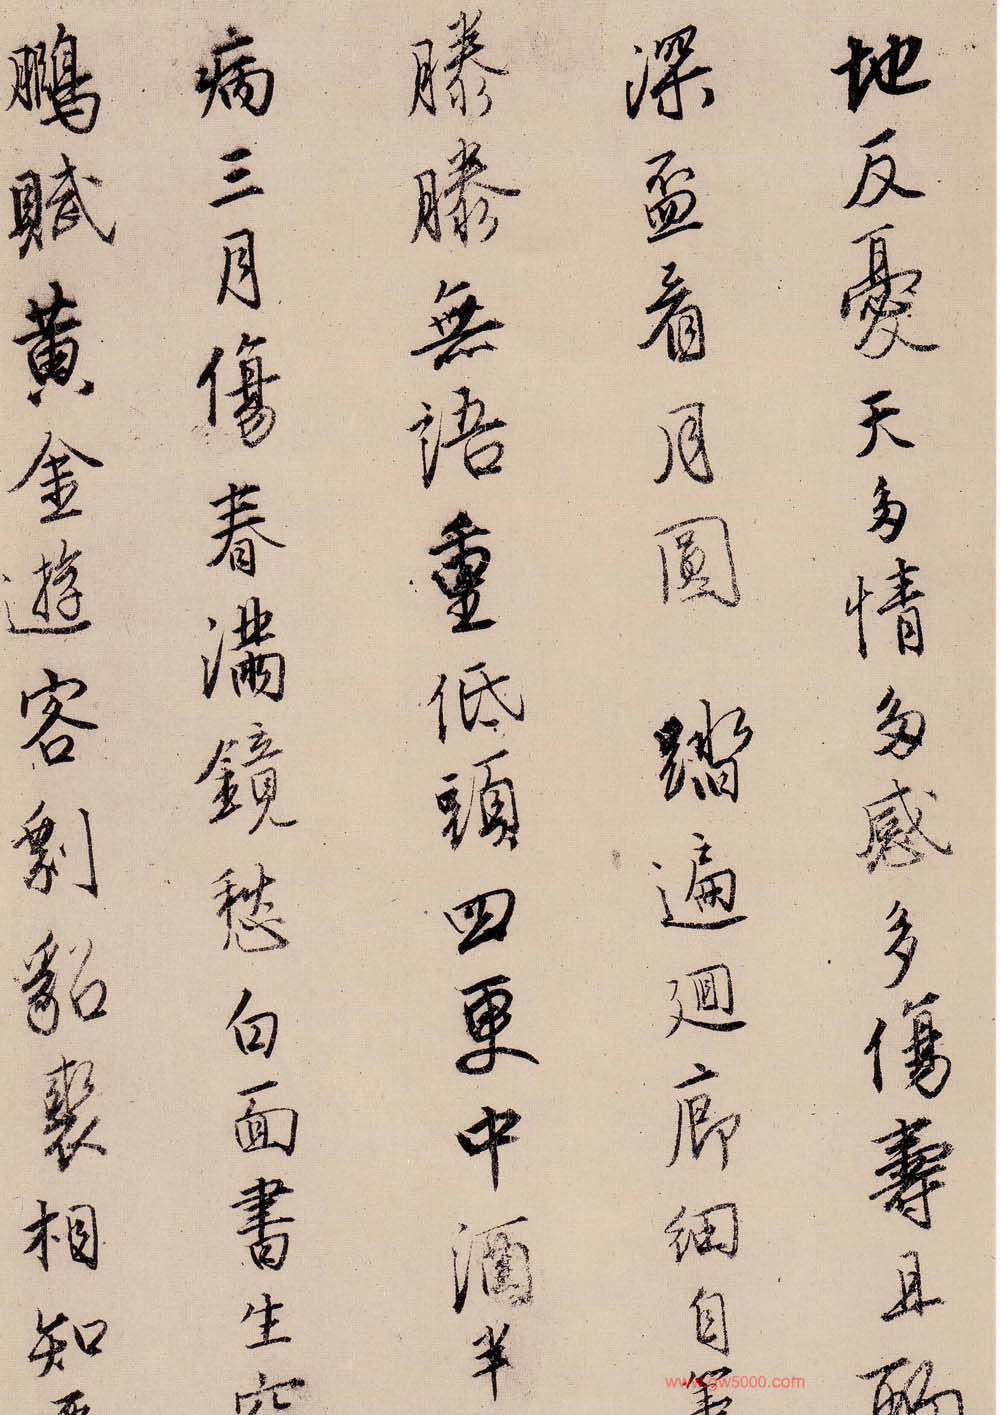 地反憂天多情多感多傷壽且酌
深盃看月圓 踏遍迴廊細自算
滕滕無語重低頭四更中酒半
病三月傷春滿鏡愁白面書生空
鵬賦黃金遊客剩貂裘相知
www.gw5000.com